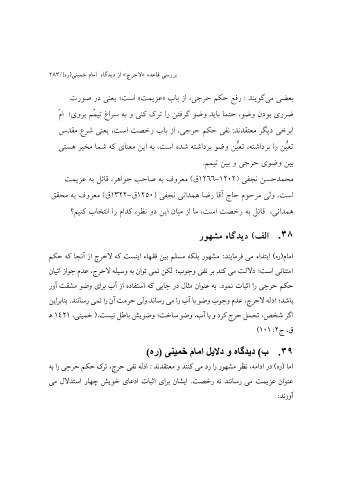 بررسی قاعده «لاحرج» از دیدگاه امام خمینی(ره)/۲۸۳
بعضی می‌گویند : رفع حکم حرجی، از باب «عزیمت» است؛ یعنی در صورت
ضرری بودن وضو، حتما باید وضو گرفتن را ترک کنی و به سراغ تیمّم بروی؛ امّ
ابرخی دیگر معتقدند: نفی حکم حرجی، از باب رخصت است، یعنی شرع مقدس
تعیُّن را برداشته، تعیُّن وضو برداشته شده است، به این معنای که شما مخیر هستی
بین وضوی حرجی و بین تیمم.
محمدحسن نجفی (۱۲۰۲-۱۲۶۶ق) معروف به صاحب جواهر، قائل به عزیمت
است، ولی مرحوم حاج آقا رضا همدانی نجفی (۱۲۵۰ق-۱۳۲۲ق) معروف به محقق
همدانی، قائل به رخصت است، ما از میان این دو نظر، کدام را انتخاب کنیم؟
۳۸. الف) دیدگاه مشهور
امام(ره) ابتداء می فرمایند: مشهور بلکه مسلم بین فقهاء اینست که لاحرج از آنجا که حکم
امتنانی است؛ دلالت می کند بر نفی وجوب؛ لکن نمی توان به وسیله لاحرج، عدم جواز اتیان
حکم حرجی را اثبات نمود. به عنوان مثال در جایی که استفاده از آب برای وضو مشقت آور
باشد؛ ادله لاحرج، عدم وجوب وضو با آب را می رساند ولی حرمت آن را نمی رسانند. بنابراین
اگر شخص، تحمل حرج کرد و با آب، وضو ساخت؛ وضویش باطل نیست.( خمینی، ۱۴۲۱ ه
ق، ج۲: ۱۰۱)
۳۹. ب) دیدگاه و دلایل امام خمینی (ره)
اما (ره) در ادامه، نظر مشهور را رد می کنند و معتقدند : ادله نفی حرج، ترک حکم حرجی را به
عنوان عزیمت می رسانند نه رخصت. ایشان برای اثبات ادعای خویش چهار استدلال می
آورند: